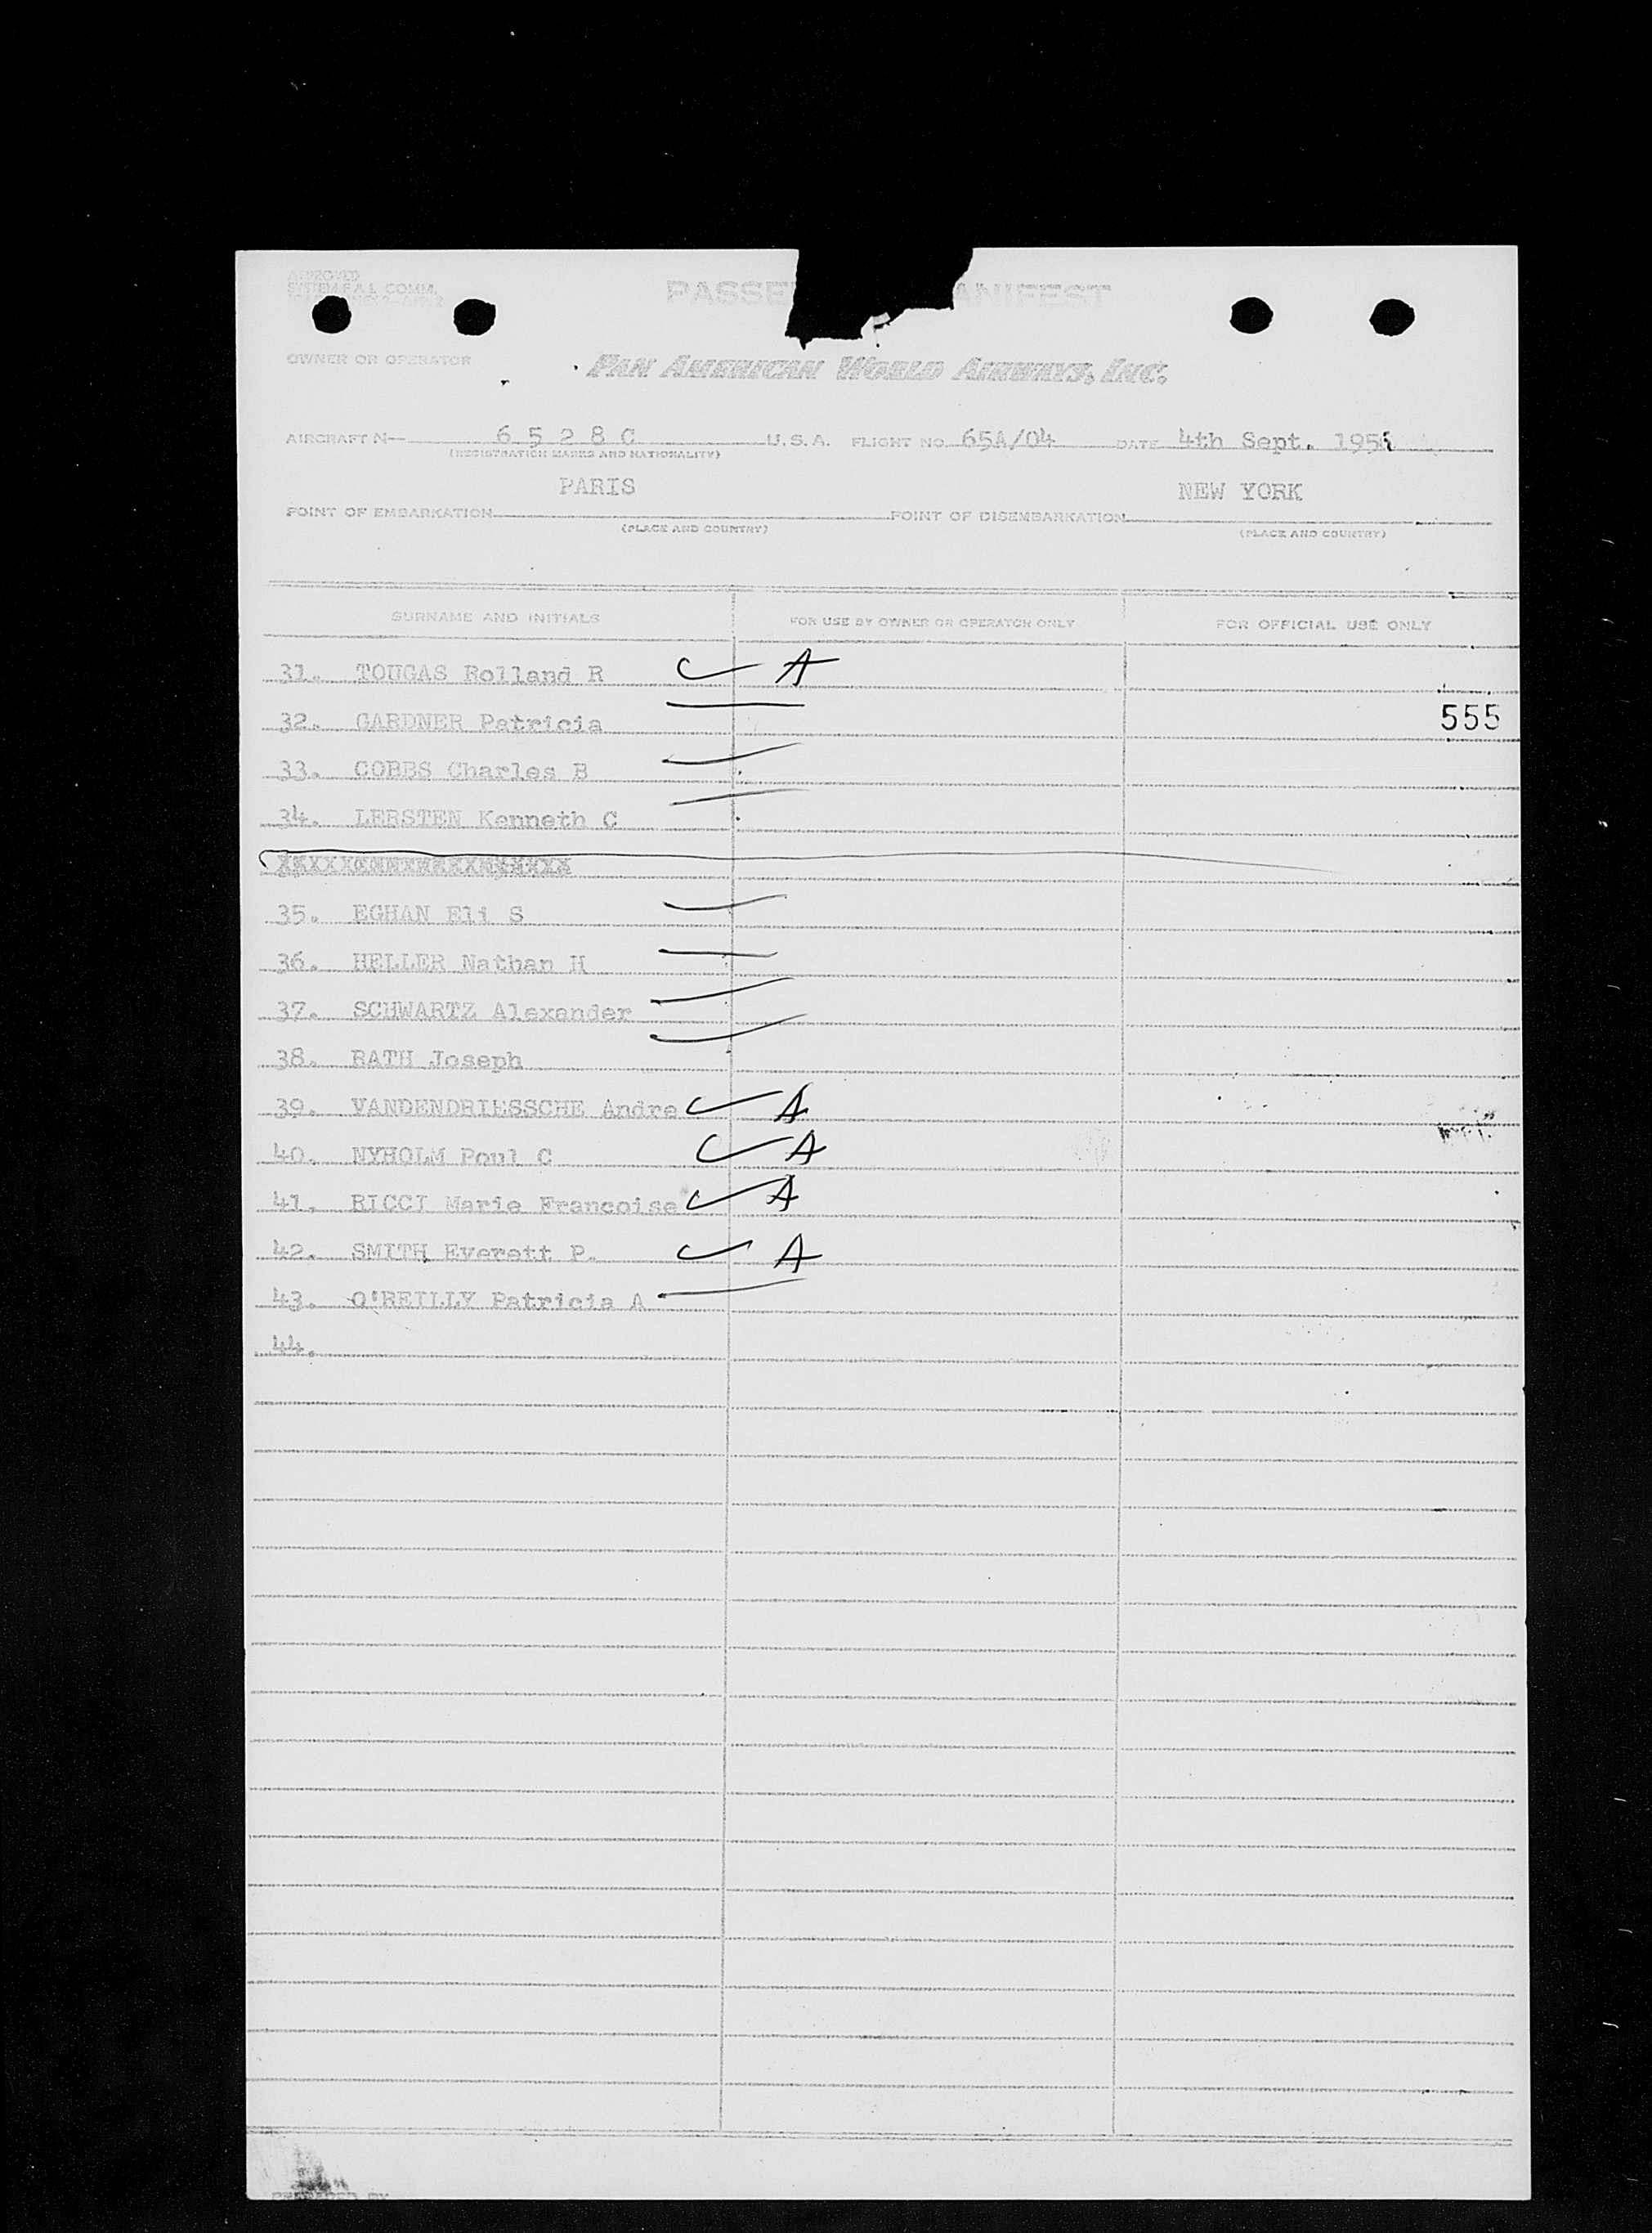 APPROVED
SYSTEM F.A.L. COMM.
PASSE ANIFEST
OWNER OR OPERATOR
PAN AMERICAN WORLD AIRWAYS, INC.
AIRCRAFT N— 6 5 2 8 C U.S.A. FLIGHT NO. 65A/04 DATE 4th Sept. 195
(REGISTRATION MARKS AND NATIONALITY)
PARIS NEW YORK
POINT OF EMBARKATION POINT OF DISEMBARKATION
(PLACE AND COUNTRY) (PLACE AND COUNTRY)
SURNAME AND INITIALS FOR USE BY OWNER OR OPERATOR ONLY FOR OFFICIAL USE ONLY
31. TOUGAS Rolland R A
32. GARDNER Patricia 555
33. COBBS Charles B
34. LERSTEN Kenneth C
35. EGHAN Eli S
36. HELLER Nathan H
37. SCHWARTZ Alexander
38. RATH Joseph
39. VANDENDRIESSCHE Andre A
40. NYHOLM Poul C A
41. RICCI Marie Francoise A
42. SMITH Everett P. A
43. O'REILLY Patricia A
44.
PREPARED BY